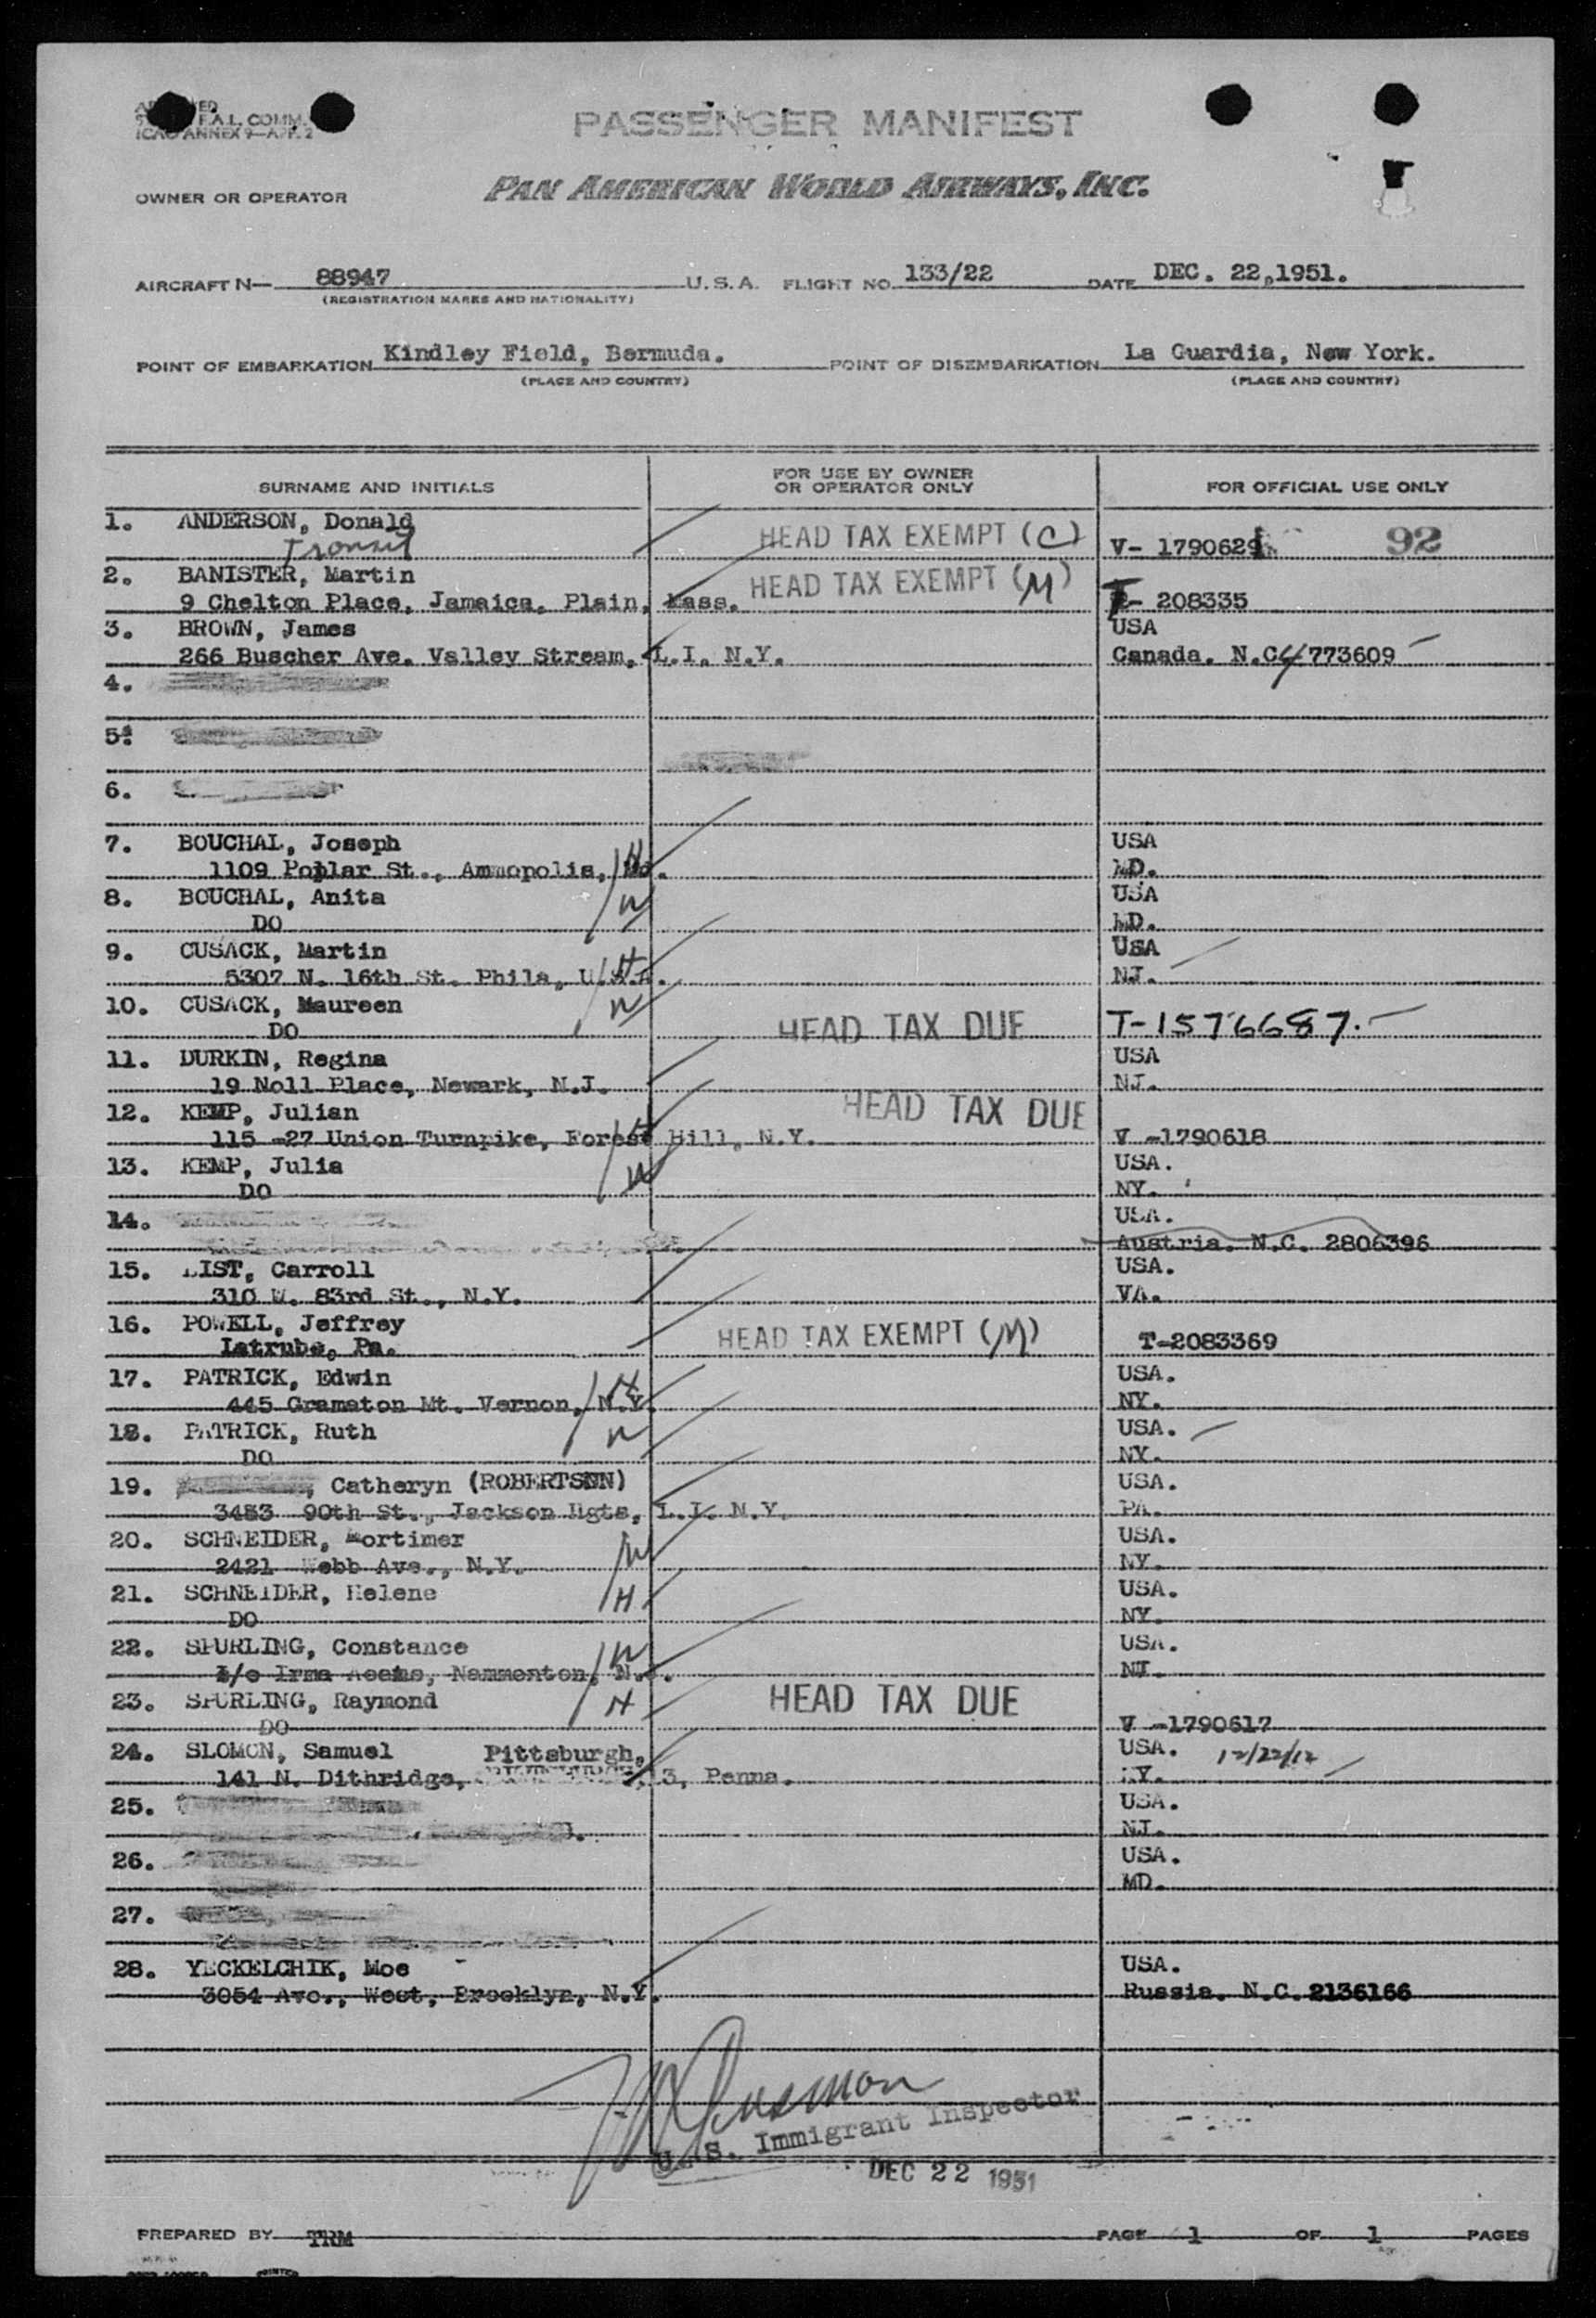 F.A.L. COMM.
ICAO ANNEX 9—APP. 2
PASSENGER MANIFEST
OWNER OR OPERATOR PAN AMERICAN WORLD AIRWAYS, INC.
AIRCRAFT N— 88947 U.S.A. FLIGHT NO. 133/22 DATE DEC. 22,1951.
(REGISTRATION MARKS AND NATIONALITY)
POINT OF EMBARKATION Kindley Field, Bermuda. POINT OF DISEMBARKATION La Guardia, New York.
(PLACE AND COUNTRY) (PLACE AND COUNTRY)
SURNAME AND INITIALS FOR USE BY OWNER OR OPERATOR ONLY FOR OFFICIAL USE ONLY
1. ANDERSON, Donald
Transit HEAD TAX EXEMPT (C) V- 1790629 92
2. BANISTER, Martin HEAD TAX EXEMPT (M)
9 Chelton Place, Jamaica, Plain, Mass. T- 208335
3. BROWN, James USA
266 Buscher Ave. Valley Stream, L.I. N.Y. Canada. N.C. 773609
4.
5.
6.
7. BOUCHAL, Joseph USA
1109 Poplar St., Ammopolis, Md. H MD.
8. BOUCHAL, Anita W USA
DO MD.
9. CUSACK, Martin USA
5307 N. 16th St. Phila, U.S.A. H NJ.
10. CUSACK, Maureen W
DO HEAD TAX DUE T-1576687.
11. DURKIN, Regina USA
19 Noll Place, Newark, N.J. NJ.
12. KEMP, Julian HEAD TAX DUE
115 -27 Union Turnpike, Forest Hill, N.Y. H V -1790618
13. KEMP, Julia W USA.
DO NY.
14. USA.
Austria. N.C. 2806396
15. LIST, Carroll USA.
310 W. 83rd St., N.Y. VA.
16. POWELL, Jeffrey HEAD TAX EXEMPT (M)
Latrube, Pa. T-2083369
17. PATRICK, Edwin H USA.
445 Gramaton Mt. Vernon, N.Y. NY.
18. PATRICK, Ruth W USA.
DO NY.
19. , Catheryn (ROBERTSON) USA.
3453 90th St., Jackson Hgts, L.I. N.Y. PA.
20. SCHNEIDER, Mortimer W USA.
2421 Webb Ave., N.Y. NY.
21. SCHNEIDER, Helene H USA.
DO NY.
22. SPURLING, Constance W USA.
Irma Nammonton, N.J. NJ.
23. SPURLING, Raymond H HEAD TAX DUE
DO V -1790617
24. SLOMON, Samuel Pittsburgh, USA. 12/22/12
141 N. Dithridge, 13, Penna. NY.
25. USA.
NJ.
26. USA.
MD.
27.
28. YECKELCHIK, Moe USA.
3054 Ave., West, Brooklyn, N.Y. Russia. N.C. 2136166
U. S. Immigrant Inspector
DEC 22 1951
PREPARED BY TRM PAGE 1 OF 1 PAGES